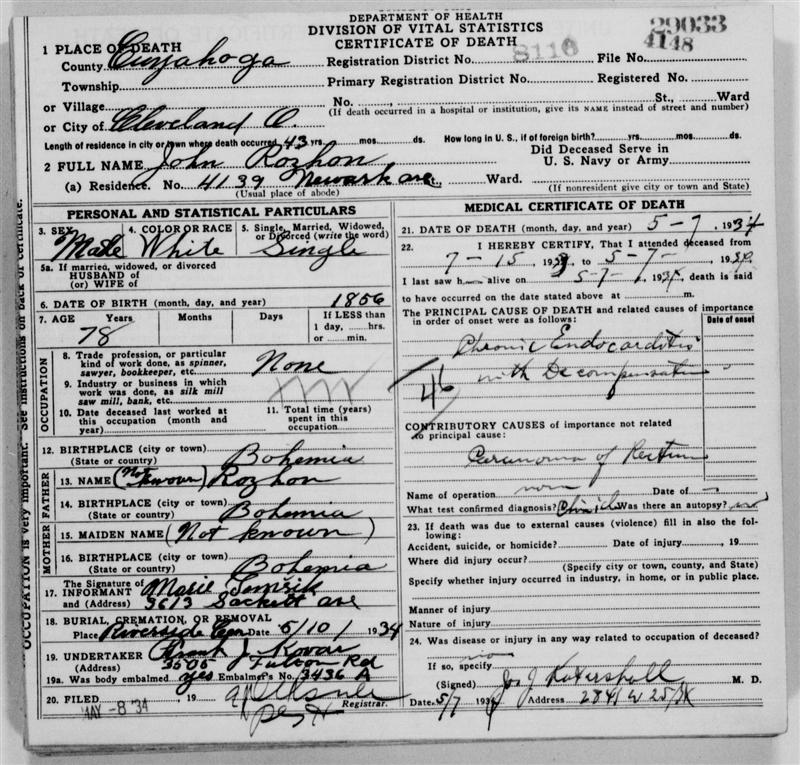 DEPARTMENT OF HEALTH
DIVISION OF VITAL STATISTICS
CERTIFICATE OF DEATH
29033
4148
8116
1 PLACE OF DEATH
County Cuyahoga Registration District No. File No.
Township Primary Registration District No. Registered No.
or Village No. , St., Ward
(If death occurred in a hospital or institution, give its NAME instead of street and number)
or City of Cleveland O.
Length of residence in city or town where death occurred 43 yrs. mos. ds. How long in U. S., if of foreign birth? yrs. mos. ds.
2 FULL NAME John Rozhon Did Deceased Serve in U. S. Navy or Army
(a) Residence. No. 4139 Newark ave, Ward.
(Usual place of abode) (If nonresident give city or town and State)
OCCUPATION is very important. See instructions on back of certificate.
PERSONAL AND STATISTICAL PARTICULARS
3. SEX Male 4. COLOR OR RACE White 5. Single, Married, Widowed, or Divorced (write the word) Single
5a. If married, widowed, or divorced
HUSBAND of
(or) WIFE of
6. DATE OF BIRTH (month, day, and year) 1856
7. AGE Years 78 Months Days If LESS than 1 day, hrs. or min.
OCCUPATION
8. Trade profession, or particular kind of work done, as spinner, sawyer, bookkeeper, etc. None
9. Industry or business in which work was done, as silk mill saw mill, bank, etc.
10. Date deceased last worked at this occupation (month and year)
11. Total time (years) spent in this occupation
12. BIRTHPLACE (city or town)
(State or country) Bohemia
FATHER
13. NAME (Not known) Rozhon
14. BIRTHPLACE (city or town)
(State or country) Bohemia
MOTHER
15. MAIDEN NAME (Not known)
16. BIRTHPLACE (city or town)
(State or country) Bohemia
17. The Signature of INFORMANT Marie
and (Address) 3613 Sackett ave
18. BURIAL, CREMATION, OR REMOVAL
Place Riverside Cem Date 5/10/ 1934
19. UNDERTAKER Frank J Kovar
(Address) 3505 Fulton Rd
19a. Was body embalmed yes Embalmer's No. 3436 A
20. FILED , 19 Registrar.
MAY -8 '34
MEDICAL CERTIFICATE OF DEATH
21. DATE OF DEATH (month, day, and year) 5-7, 1934
22. I HEREBY CERTIFY, That I attended deceased from
7-15, 193 to 5-7-, 1934
I last saw h alive on 5-7-, 1934, death is said
to have occurred on the date stated above at m.
The PRINCIPAL CAUSE OF DEATH and related causes of importance in order of onset were as follows: Date of onset
Chronic Endocarditis
with Decompensation
46
CONTRIBUTORY CAUSES of importance not related to principal cause:
Carcinoma of Rectum
Name of operation none Date of
What test confirmed diagnosis? Clinical Was there an autopsy? no
23. If death was due to external causes (violence) fill in also the following:
Accident, suicide, or homicide? Date of injury , 19
Where did injury occur?
(Specify city or town, county, and State)
Specify whether injury occurred in industry, in home, or in public place.
Manner of injury
Nature of injury
24. Was disease or injury in any way related to occupation of deceased?
no
If so, specify
(Signed) M. D.
Date 5/7 1934 Address 2841 W 25 St